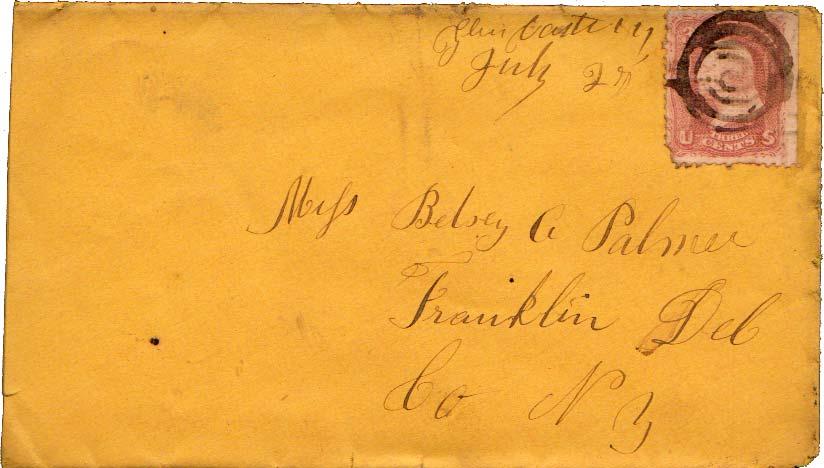 Glen Castle NY
July 27
U THREE S
CENTS
Miss Betsey A Palmer
Franklin Del
Co N Y